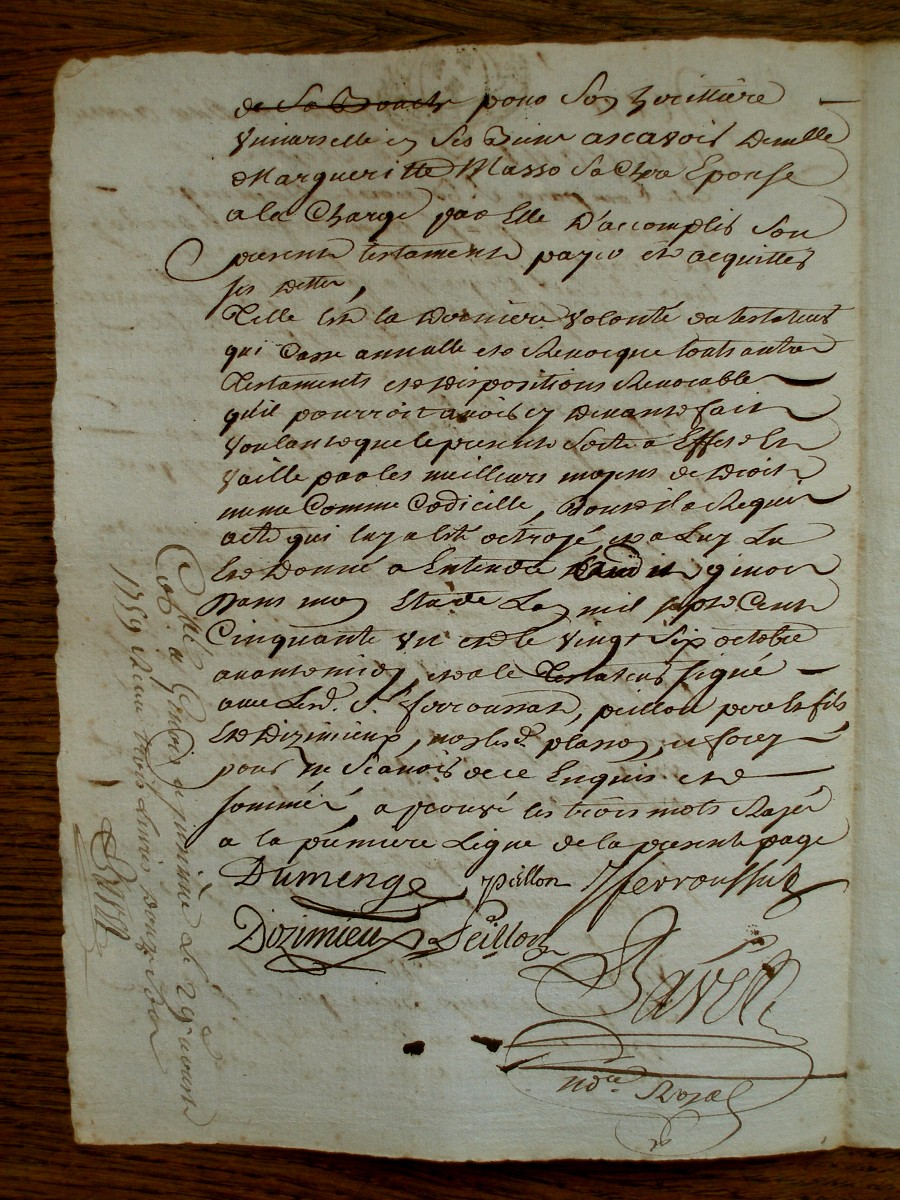 de Sa Bouche pour Son heritiere
Universelle en Ses Biens ascavoir Demlle
Margueritte Masso Sa Chere Epouse
a la Charge par Elle D'accomplir Son
present testament payer et acquitter
ses dettes,
Telle Est la Derniere volonté du testateur
qui Casse annulle et Revocque touts autres
Testaments et Dispositions Revocable
qu'il pourroit avoir cy Devant fait
Voulant que le present Sorte a Effet et
Vaille par les meilleurs moyens de Droit
meme Comme Codicille, Dont il a Requis
acte qui luy a Eté octroyé et a Luy Lu
Et Donné a Entendre
Dans mon Etude L'an mil sept Cent
Cinquante et le vingt Six octobre
avant midy, et a le Testateur signé
avec Led. Sr. ferroussat, peillon pere et fils
Et Dizimieux, non led. plasson
pour ne Scavoir de ce Enquis et
sommé, approuvé les trois mots Rayé
a la premiere Ligne de la presente page
Dumenge peillon ferroussat
Dizimieux Peillon
Ravel
ndre Royal
Collé a le 29
1759 Reçu trois livres douze
Ravel